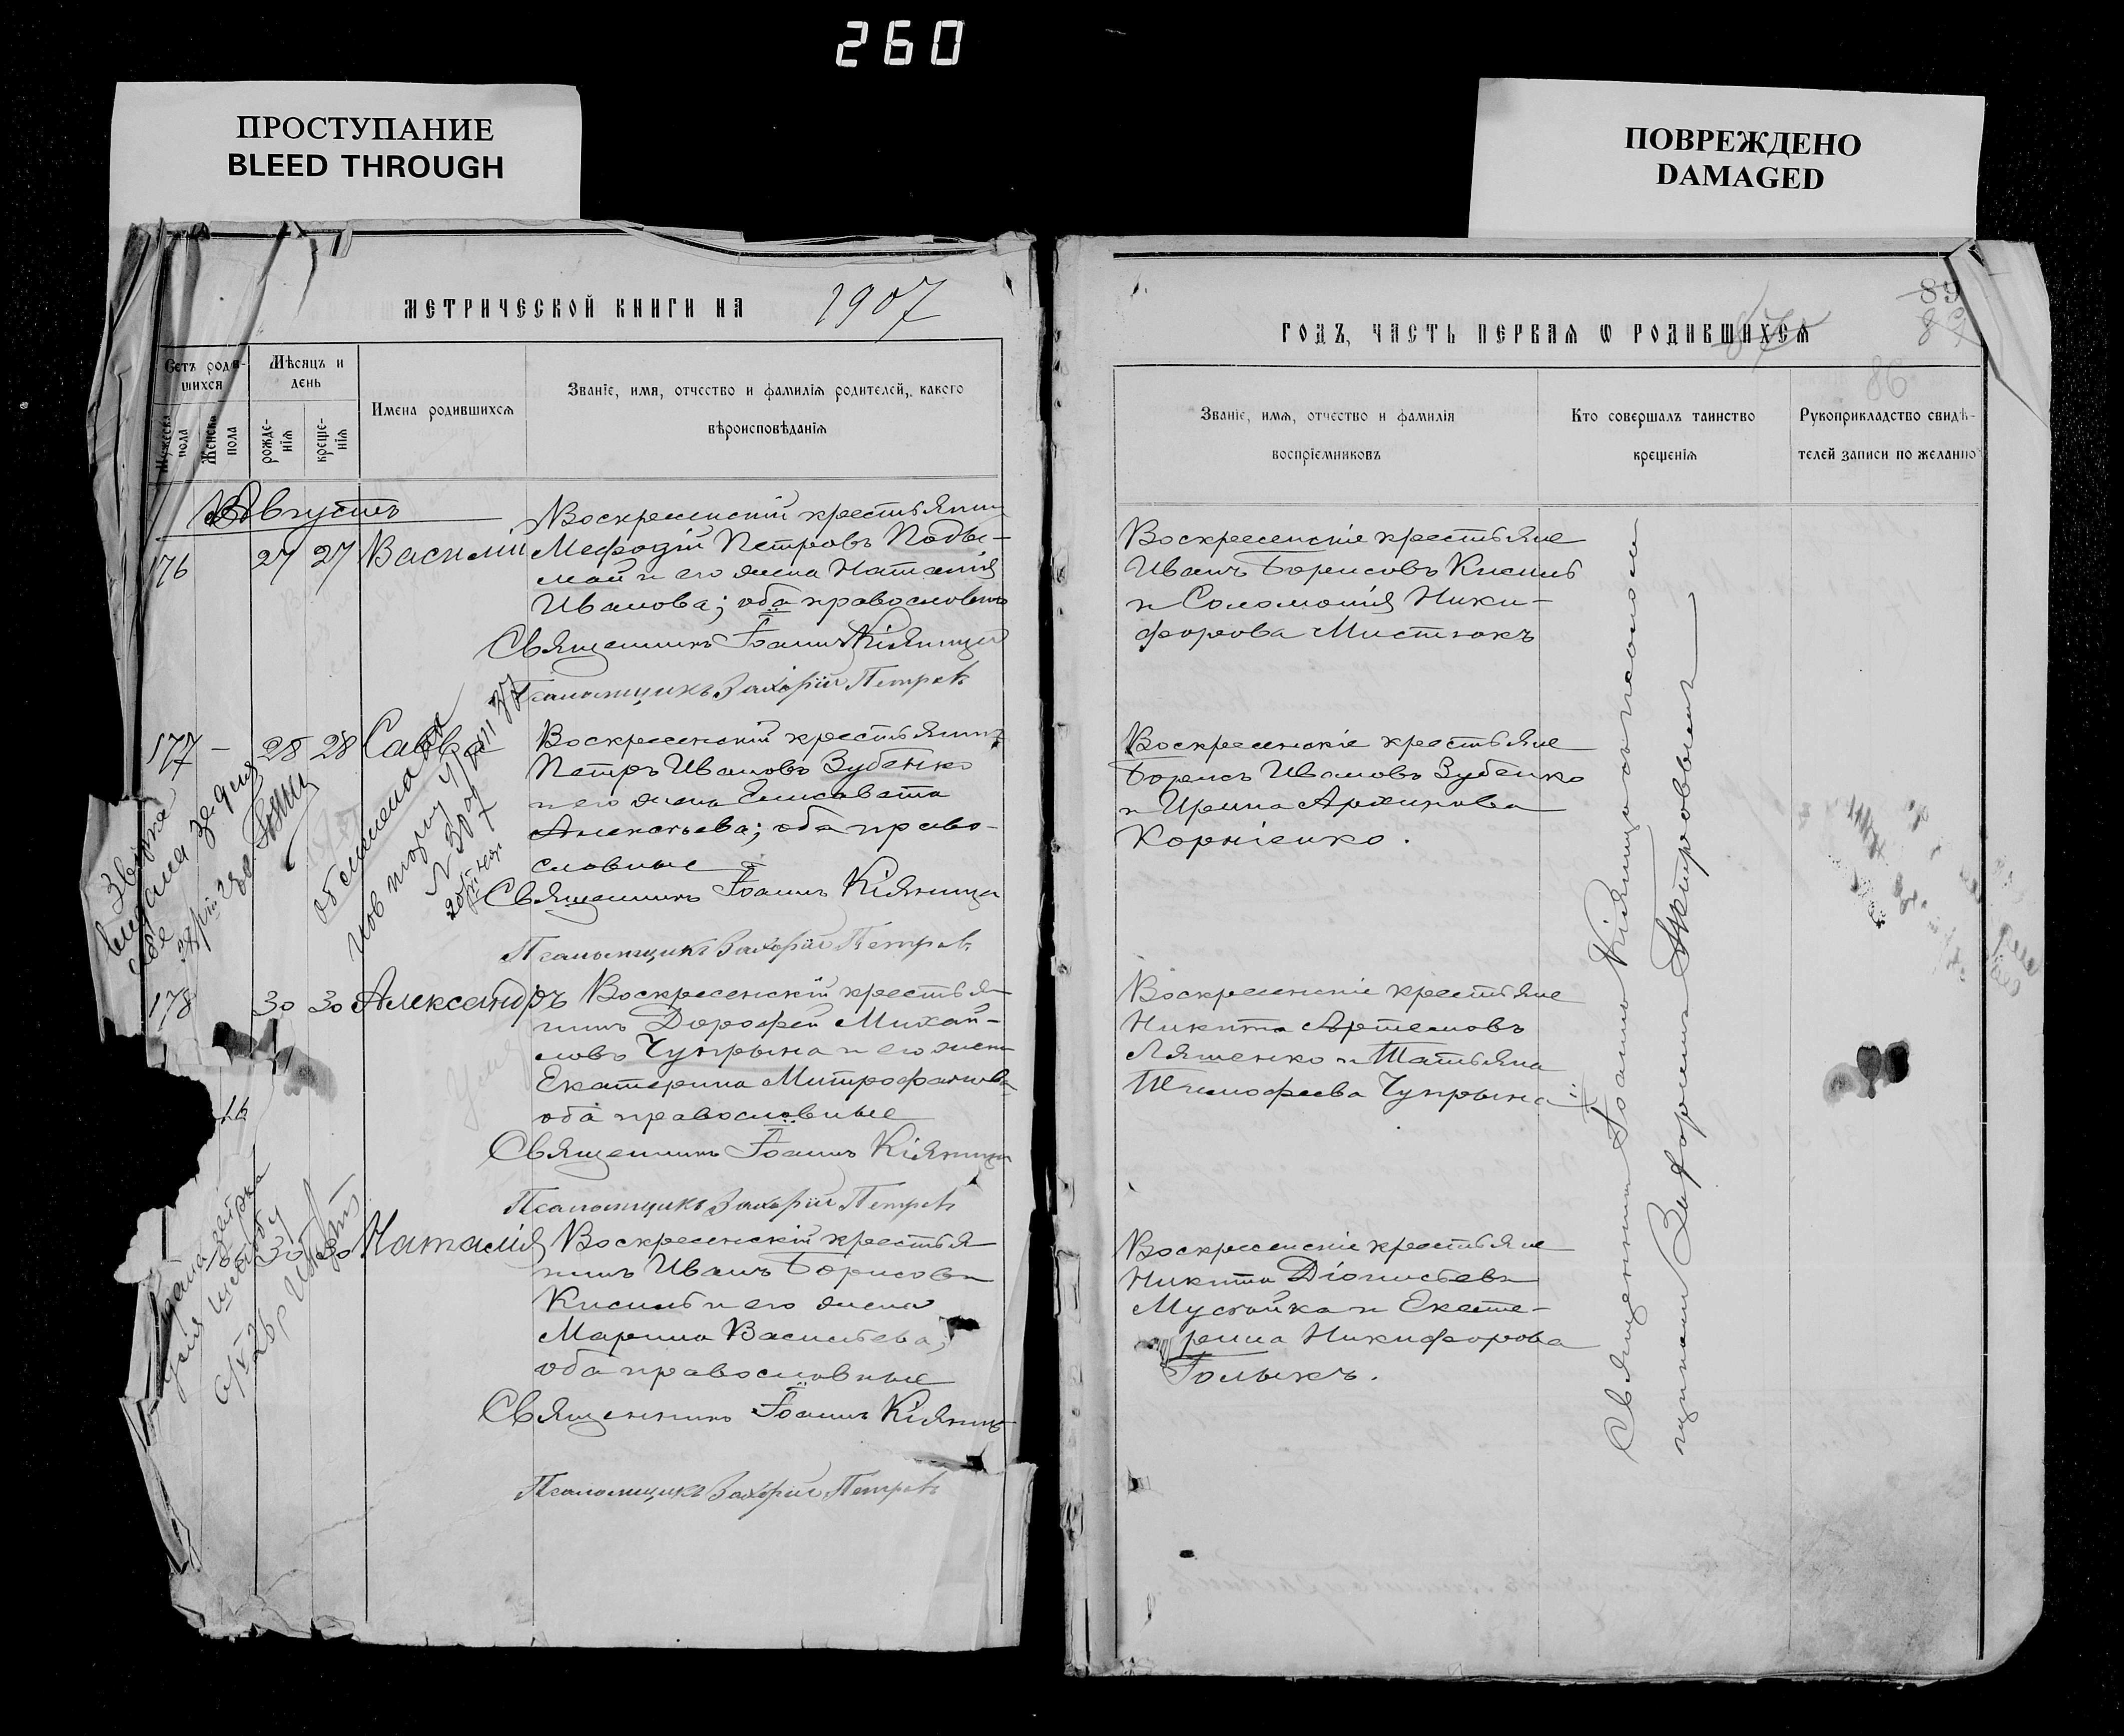 260
ПРОСТУПАНИЕ
BLEED THROUGH
ПОВРЕЖДЕНО
DAMAGED
МЕТРИЧЕСКОЙ КНИГИ НА 1907
Счетъ родившихся
Мужеска пола
Женска пола
Мѣсяцъ и день
рожденія
крещенія
Имена родившихся
Званіе, имя, отчество и фамилія родителей, какого
вѣроисповѣданія
Августъ
176 27 27 Василій
Воскресенскій крестьянинъ
Мефодій Петровъ
и его жена Наталія
Иванова; оба православные
Священникъ Іоаннъ Кіяница
Псаломщикъ Захарій Петровъ
177 - 28 28 Савва
Воскресенскій крестьянинъ
Петръ Ивановъ Зубенко
и его жена Елисавета
Алексѣева; оба право-
славные
Священникъ Іоаннъ Кіяница
Псаломщикъ Захарій Петровъ
178 30 30 Александръ
Воскресенскій крестья-
нинъ Дорофей Михай-
ловъ Чупрына и его жена
Екатерина Митрофанова
оба православные
Священникъ Іоаннъ Кіяница
Псаломщикъ Захарій Петровъ
30 30 Наталія
Воскресенскій крестья
нинъ Иванъ Борисовъ
Кисиль и его жена
Марина Васильева;
оба православные
Священникъ Іоаннъ Кіяница
Псаломщикъ Захарій Петровъ
ГОДЪ, ЧАСТЬ ПЕРВАЯ Ѡ РОДИВШИХСЯ
89
86
Званіе, имя, отчество и фамилія
воспріемниковъ
Кто совершалъ таинство
крещенія
Рукоприкладство свидѣ-
телей записи по желанію
Воскресенскіе крестьяне
Иванъ Борисовъ Кисиль
и Соломонія Ники-
форова Мистюкъ
Воскресенскіе крестьяне
Борисъ Ивановъ Зубенко
и Ирина Архипова
Корніенко.
Воскресенскіе крестьяне
Никита Артемовъ
Ляшенко и Татьяна
Тимофеева Чупрына
Воскресенскіе крестьяне
Никита Діонисьевъ
Мустайка и Екате-
рина Никифорова
Голыкъ.
Священникъ Іоаннъ Кіяница съ псалом
щикомъ Захаріемъ Петровымъ